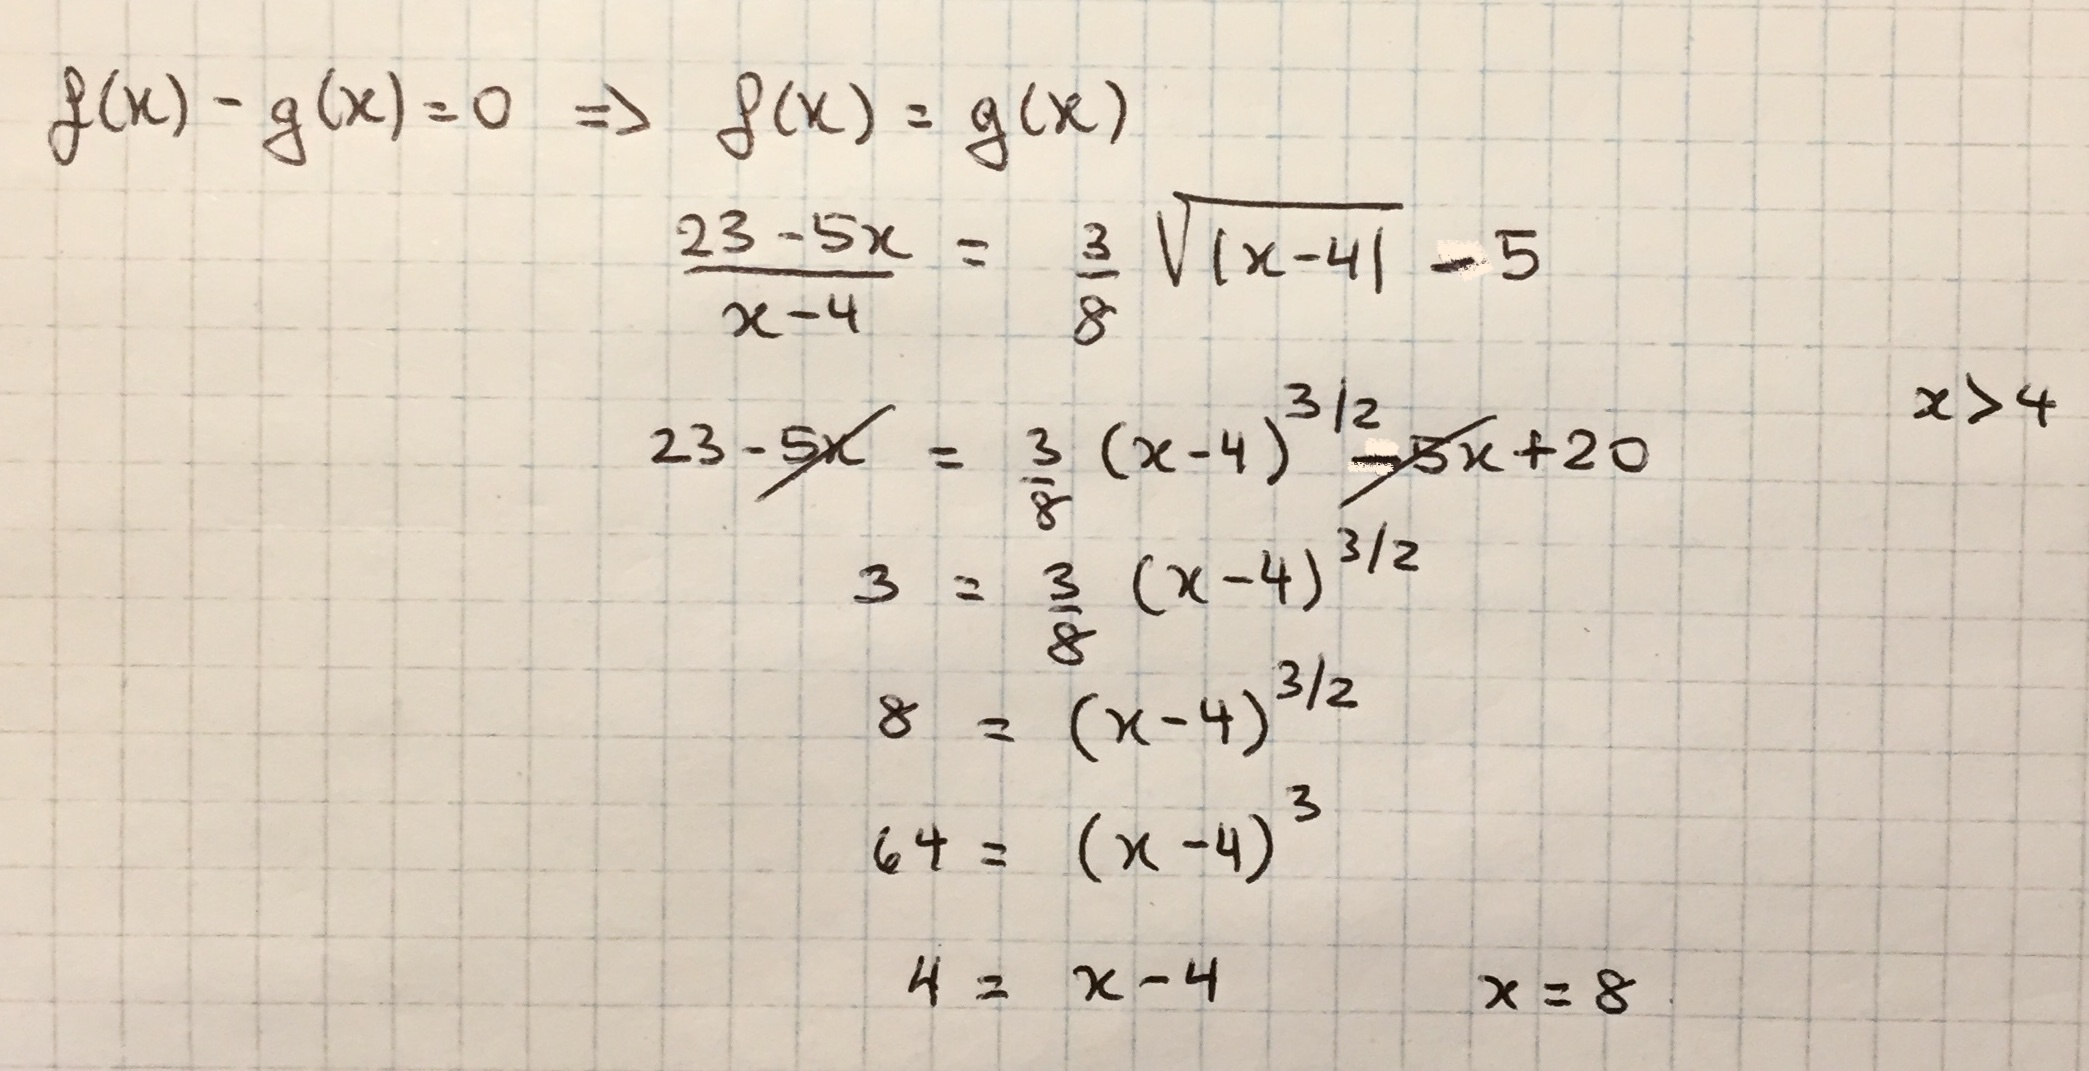 f(x) - g(x) = 0 => f(x) = g(x)
(23 - 5x)/(x - 4) = 3/8 √|x - 4| - 5
23 - 5x = 3/8 (x - 4)^3/2 - 5x + 20 x > 4
3 = 3/8 (x - 4)^3/2
8 = (x - 4)^3/2
64 = (x - 4)^3
4 = x - 4 x = 8